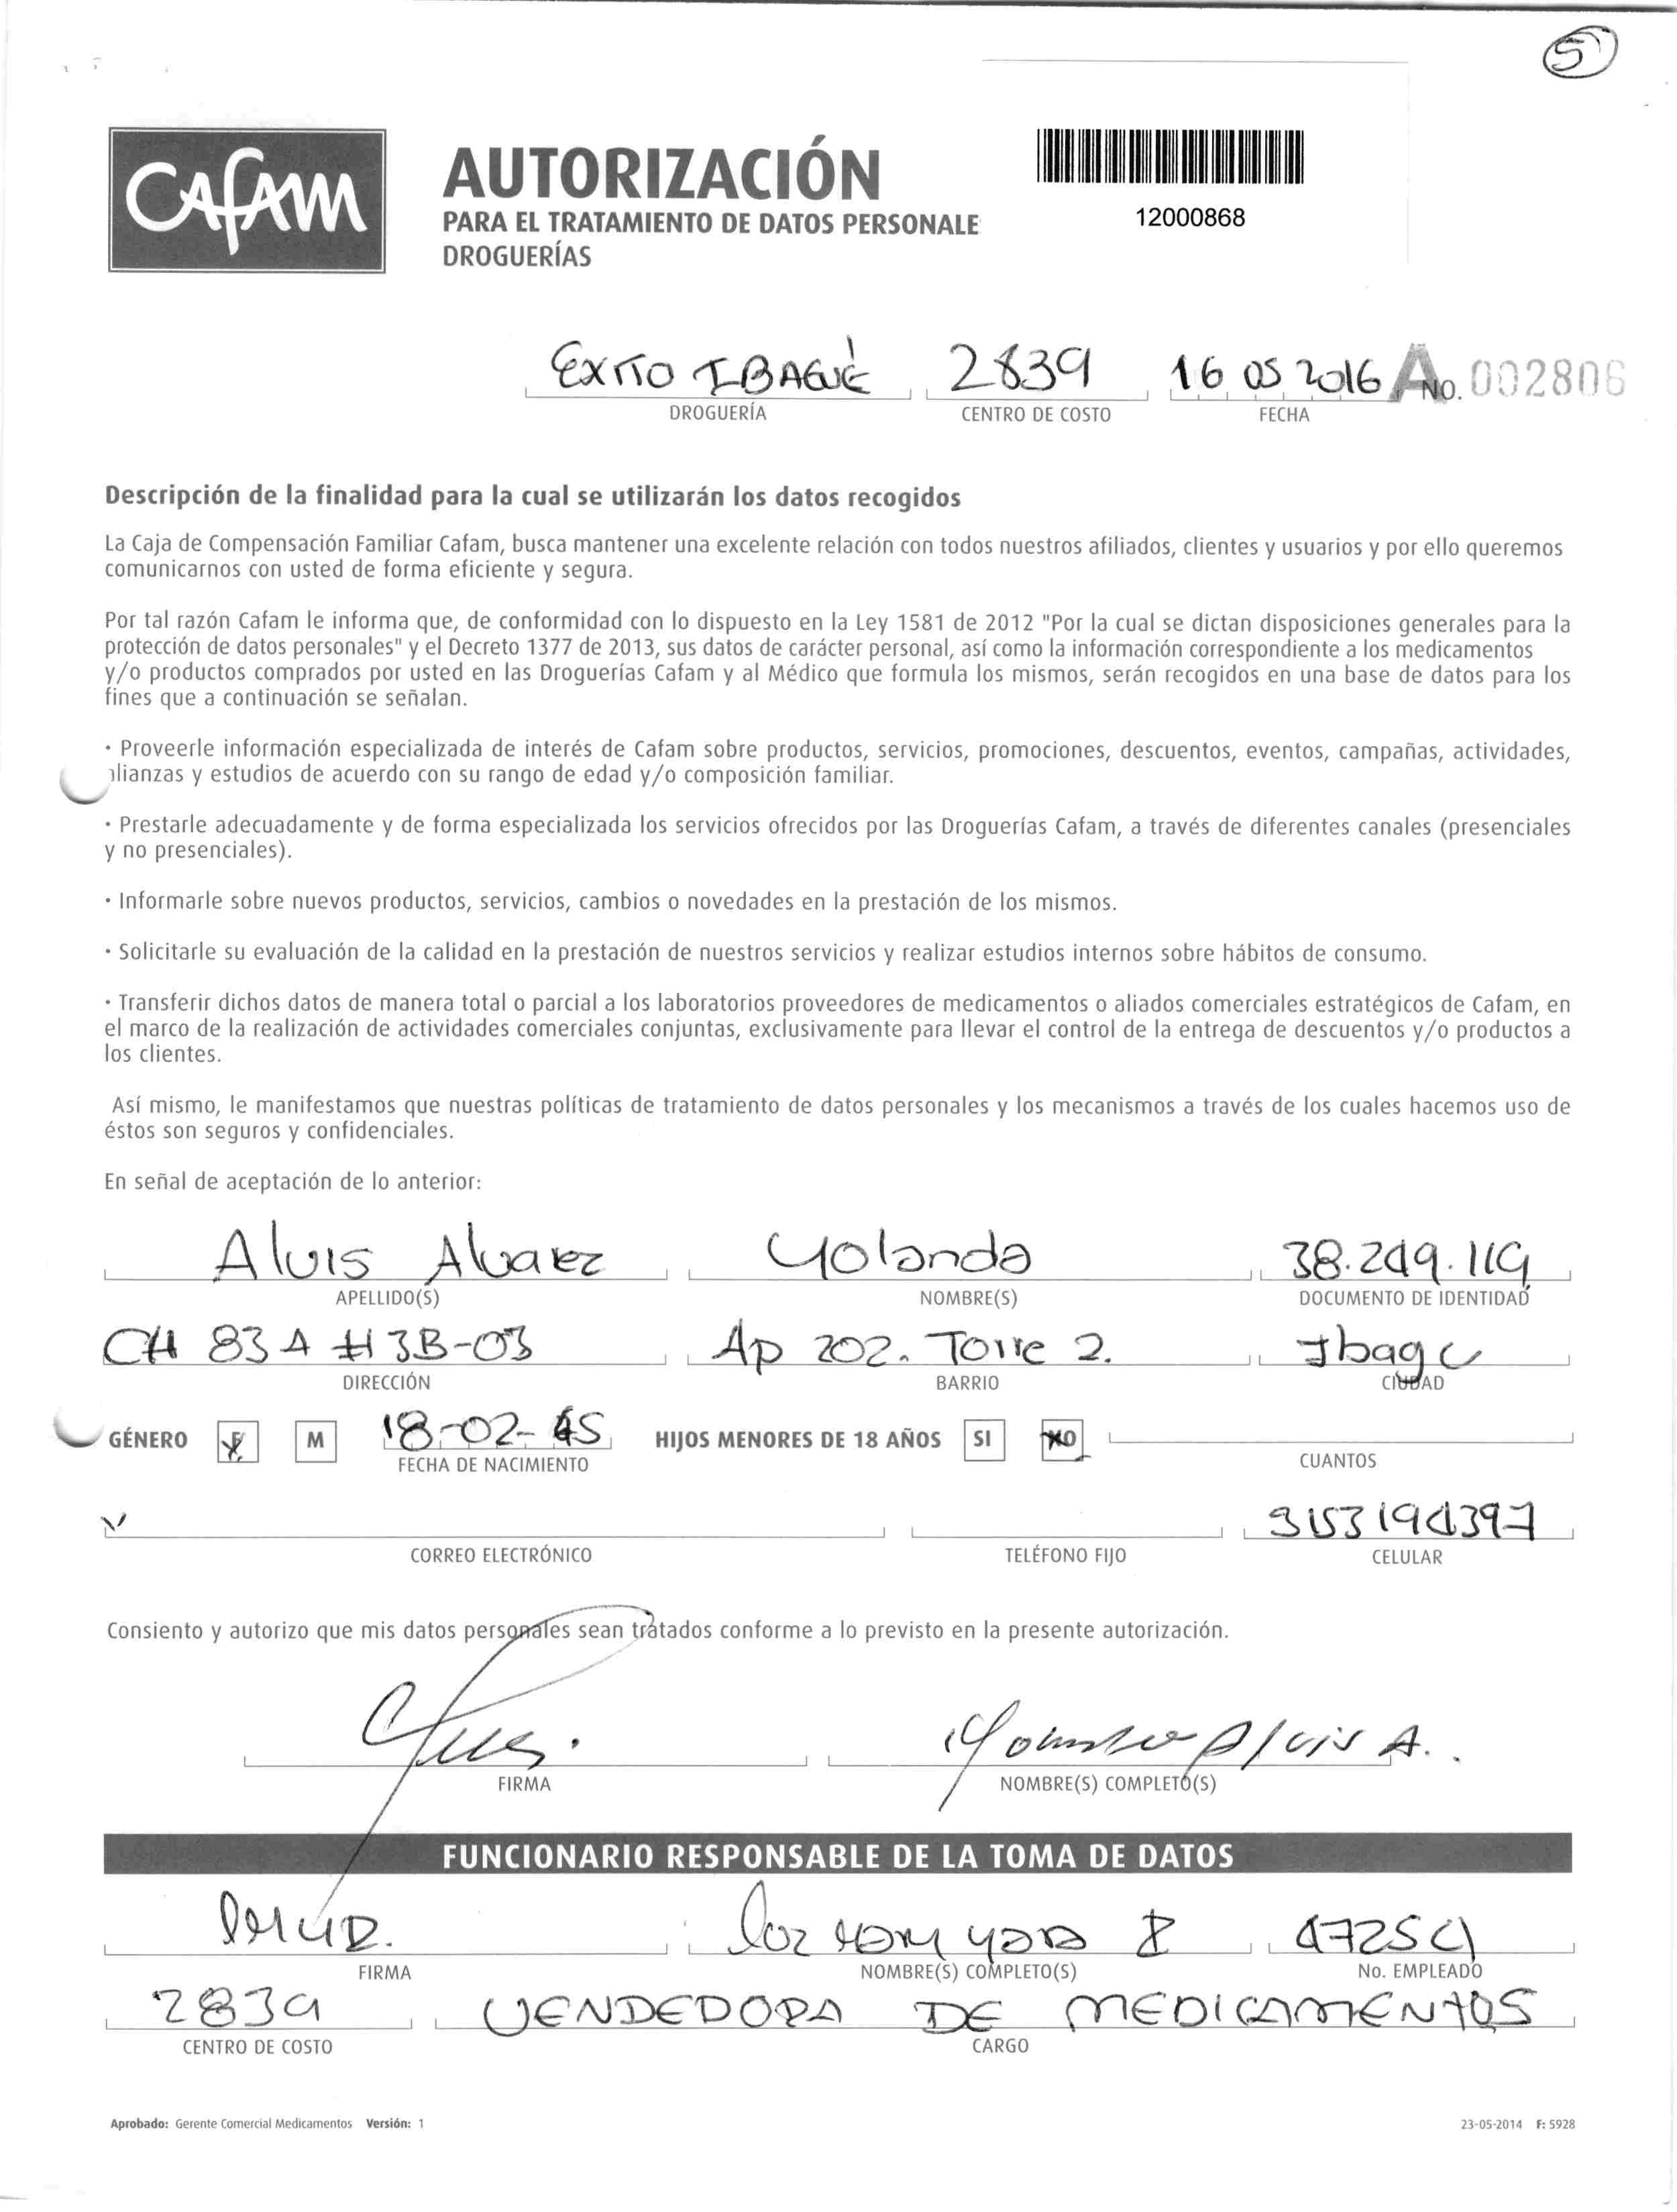 5
CAFAM
AUTORIZACIÓN
PARA EL TRATAMIENTO DE DATOS PERSONALE
DROGUERÍAS
12000868
EXITO IBAGUÉ 2839 16 05 2016 A No. 002806
DROGUERÍA CENTRO DE COSTO FECHA
Descripción de la finalidad para la cual se utilizarán los datos recogidos
La Caja de Compensación Familiar Cafam, busca mantener una excelente relación con todos nuestros afiliados, clientes y usuarios y por ello queremos
comunicarnos con usted de forma eficiente y segura.
Por tal razón Cafam le informa que, de conformidad con lo dispuesto en la Ley 1581 de 2012 "Por la cual se dictan disposiciones generales para la
protección de datos personales" y el Decreto 1377 de 2013, sus datos de carácter personal, así como la información correspondiente a los medicamentos
y/o productos comprados por usted en las Droguerías Cafam y al Médico que formula los mismos, serán recogidos en una base de datos para los
fines que a continuación se señalan.
· Proveerle información especializada de interés de Cafam sobre productos, servicios, promociones, descuentos, eventos, campañas, actividades,
alianzas y estudios de acuerdo con su rango de edad y/o composición familiar.
· Prestarle adecuadamente y de forma especializada los servicios ofrecidos por las Droguerías Cafam, a través de diferentes canales (presenciales
y no presenciales).
· Informarle sobre nuevos productos, servicios, cambios o novedades en la prestación de los mismos.
· Solicitarle su evaluación de la calidad en la prestación de nuestros servicios y realizar estudios internos sobre hábitos de consumo.
· Transferir dichos datos de manera total o parcial a los laboratorios proveedores de medicamentos o aliados comerciales estratégicos de Cafam, en
el marco de la realización de actividades comerciales conjuntas, exclusivamente para llevar el control de la entrega de descuentos y/o productos a
los clientes.
Así mismo, le manifestamos que nuestras políticas de tratamiento de datos personales y los mecanismos a través de los cuales hacemos uso de
éstos son seguros y confidenciales.
En señal de aceptación de lo anterior:
Aluis Alvarez Yolanda 38.249.119
APELLIDO(S) NOMBRE(S) DOCUMENTO DE IDENTIDAD
83 A # 3B-03 Ap 202. Torre 2. Ibague
DIRECCIÓN BARRIO CIUDAD
GÉNERO F M 18-02-45 HIJOS MENORES DE 18 AÑOS SI NO
FECHA DE NACIMIENTO CUANTOS
3153194397
CORREO ELECTRÓNICO TELÉFONO FIJO CELULAR
Consiento y autorizo que mis datos personales sean tratados conforme a lo previsto en la presente autorización.
Yolanda Alvis A.
FIRMA NOMBRE(S) COMPLETO(S)
FUNCIONARIO RESPONSABLE DE LA TOMA DE DATOS
Luz 47259
FIRMA NOMBRE(S) COMPLETO(S) No. EMPLEADO
2839 VENDEDORA DE MEDICAMENTOS
CENTRO DE COSTO CARGO
Aprobado: Gerente Comercial Medicamentos Versión: 1 23-05-2014 F: 5928